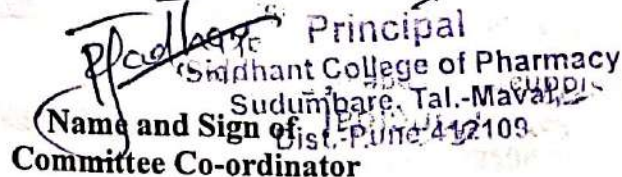 Principal
Siddhant College of Pharmacy
Sudumbare, Tal.-Maval,
Dist.-Pune-412109.
Name and Sign of
Committee Co-ordinator